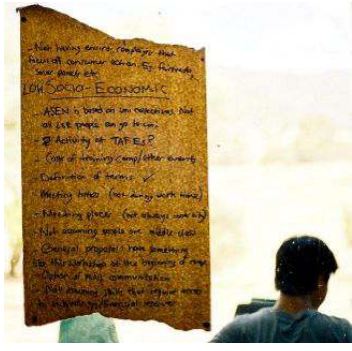 - Not having entire campaigns that
focus on consumer action. Eg fairtrade,
solar panels etc.
LOW SOCIO-ECONOMIC
- ASEN is based on uni collectives. Not
all LSE people can go to uni.
- Activity at TAFEs?
- Cost of training camp/other events
- Definition of terms ✓
- Meeting times (not during work hours)
- Meeting places (not always
- Not assuming people are middle class
- General proposal: have something
like this workshop at the beginning of
- Option of
- Not assuming skills that require access
to technology/financial resources